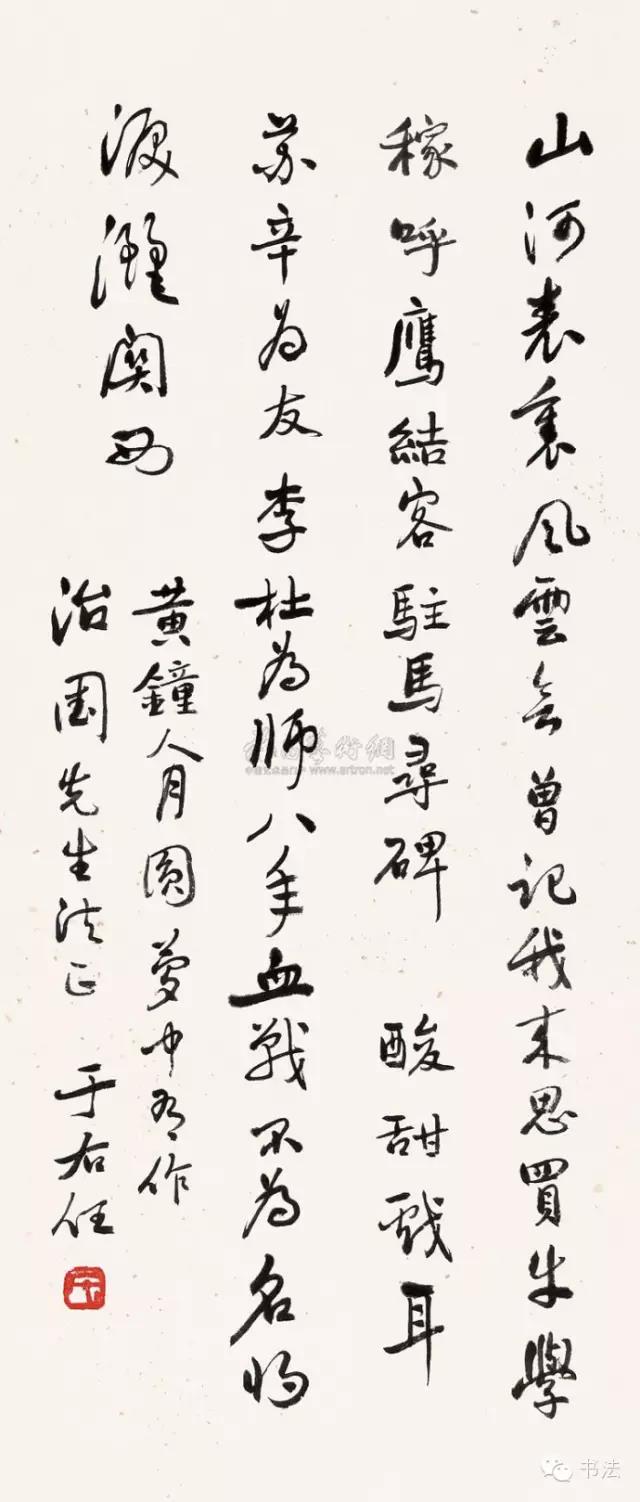 山河表裏風雲會曾記我來思買牛學
稼呼鷹結客駐馬尋碑 酸甜戲耳
蘇辛為友李杜為師八年血戰不為名將
淚灑關西
黃鐘人月圓夢中有作
治國先生法正 于右任
藝術網
www.artron.net
书法